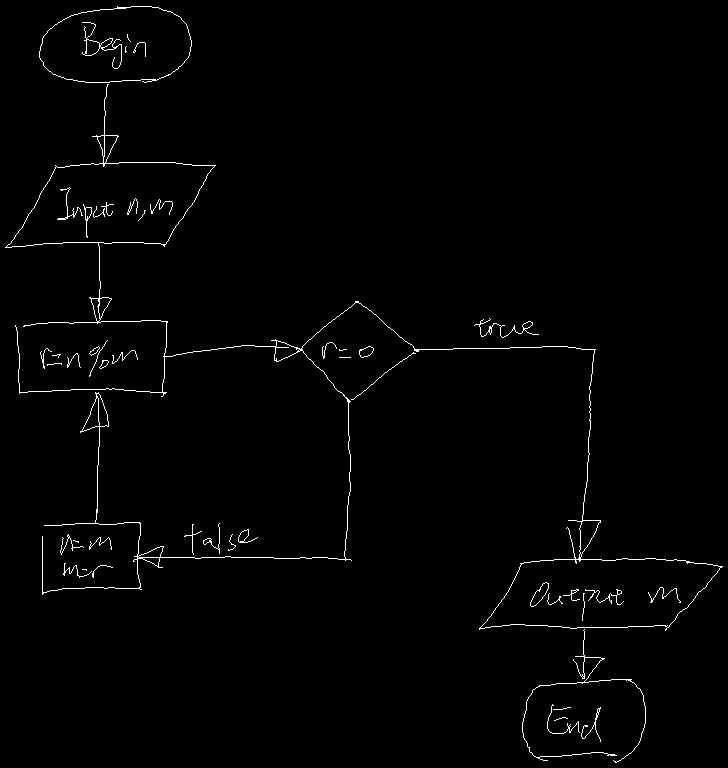 Begin
Input n,m
r=n%m
r=0
true
false
n=m
m=r
Output m
End